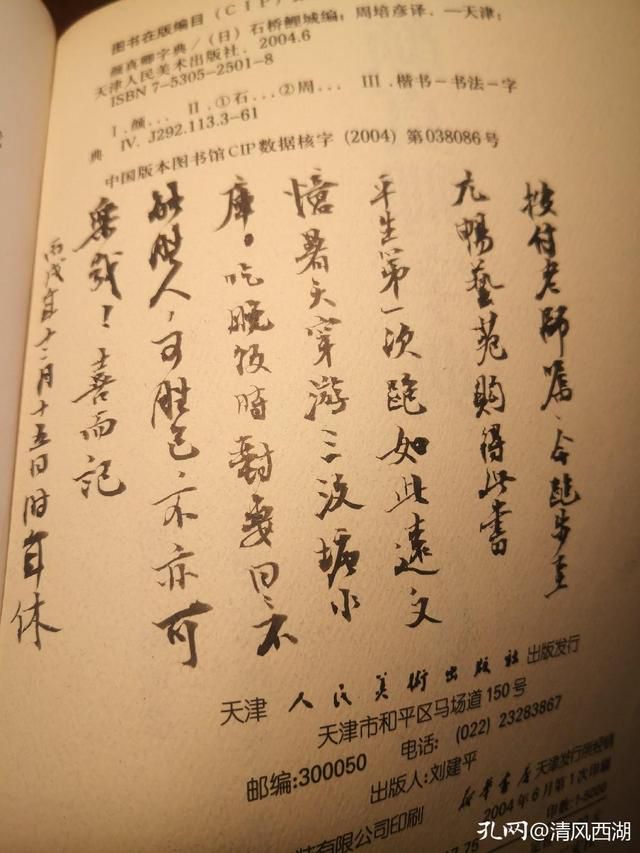 图书在版编目（CIP）
颜真卿字典／（日）石桥鲤城编；周培彦译.—天津：
天津人民美术出版社，2004.6
ISBN 7-5305-2501-8
Ⅰ.颜… Ⅱ.①石…②周… Ⅲ.楷书－书法－字
典 Ⅳ.J292.113.3-61
中国版本图书馆CIP数据核字（2004）第038086号
按付老师嘱，今跑步至
九畅艺苑购得此书
平生第一次跑如此远又
忆暑天穿游三波塘水
库。吃晚饭时对妻曰：不
能胜人，可胜己亦亦可
乐哉！喜而记
丙戌年十二月十五日时年休
天津人民美术出版社 出版发行
天津市和平区马场道150号
邮编:300050 电话:(022)23283867
出版人:刘建平
新华书店天津发行所经销
有限公司印刷
2004年6月第1次印刷
印数:1-5000
孔网@清风西湖